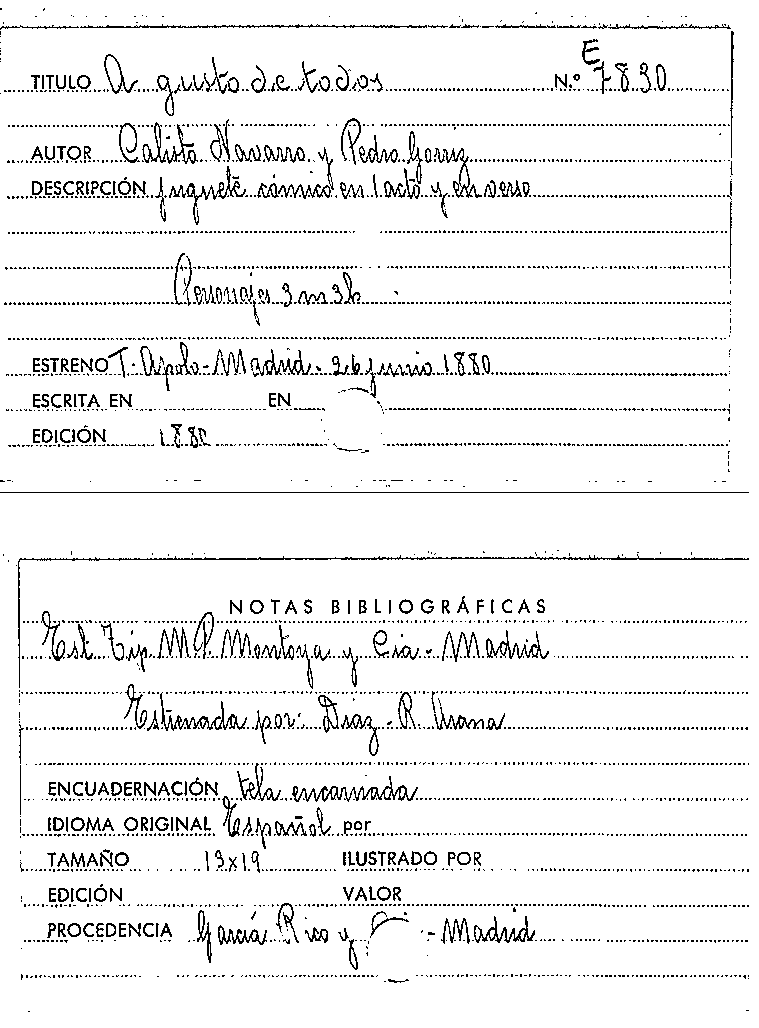 E
TITULO A gusto de todos N.º 7830
AUTOR Calisto Navarro y Pedro Gorriz
DESCRIPCIÓN juguete cómico en 1 acto y en verso
Personajes 3 m 3 h
ESTRENO T. Apolo - Madrid - 26 junio 1880
ESCRITA EN EN
EDICIÓN 1880
NOTAS BIBLIOGRÁFICAS
Est. Tip. M P Montoya y Cia - Madrid
Estrenada por: Diaz - R. Arana
ENCUADERNACIÓN tela encarnada
IDIOMA ORIGINAL Español por
TAMAÑO 13x19 ILUSTRADO POR
EDICIÓN VALOR
PROCEDENCIA García Rico y - Madrid